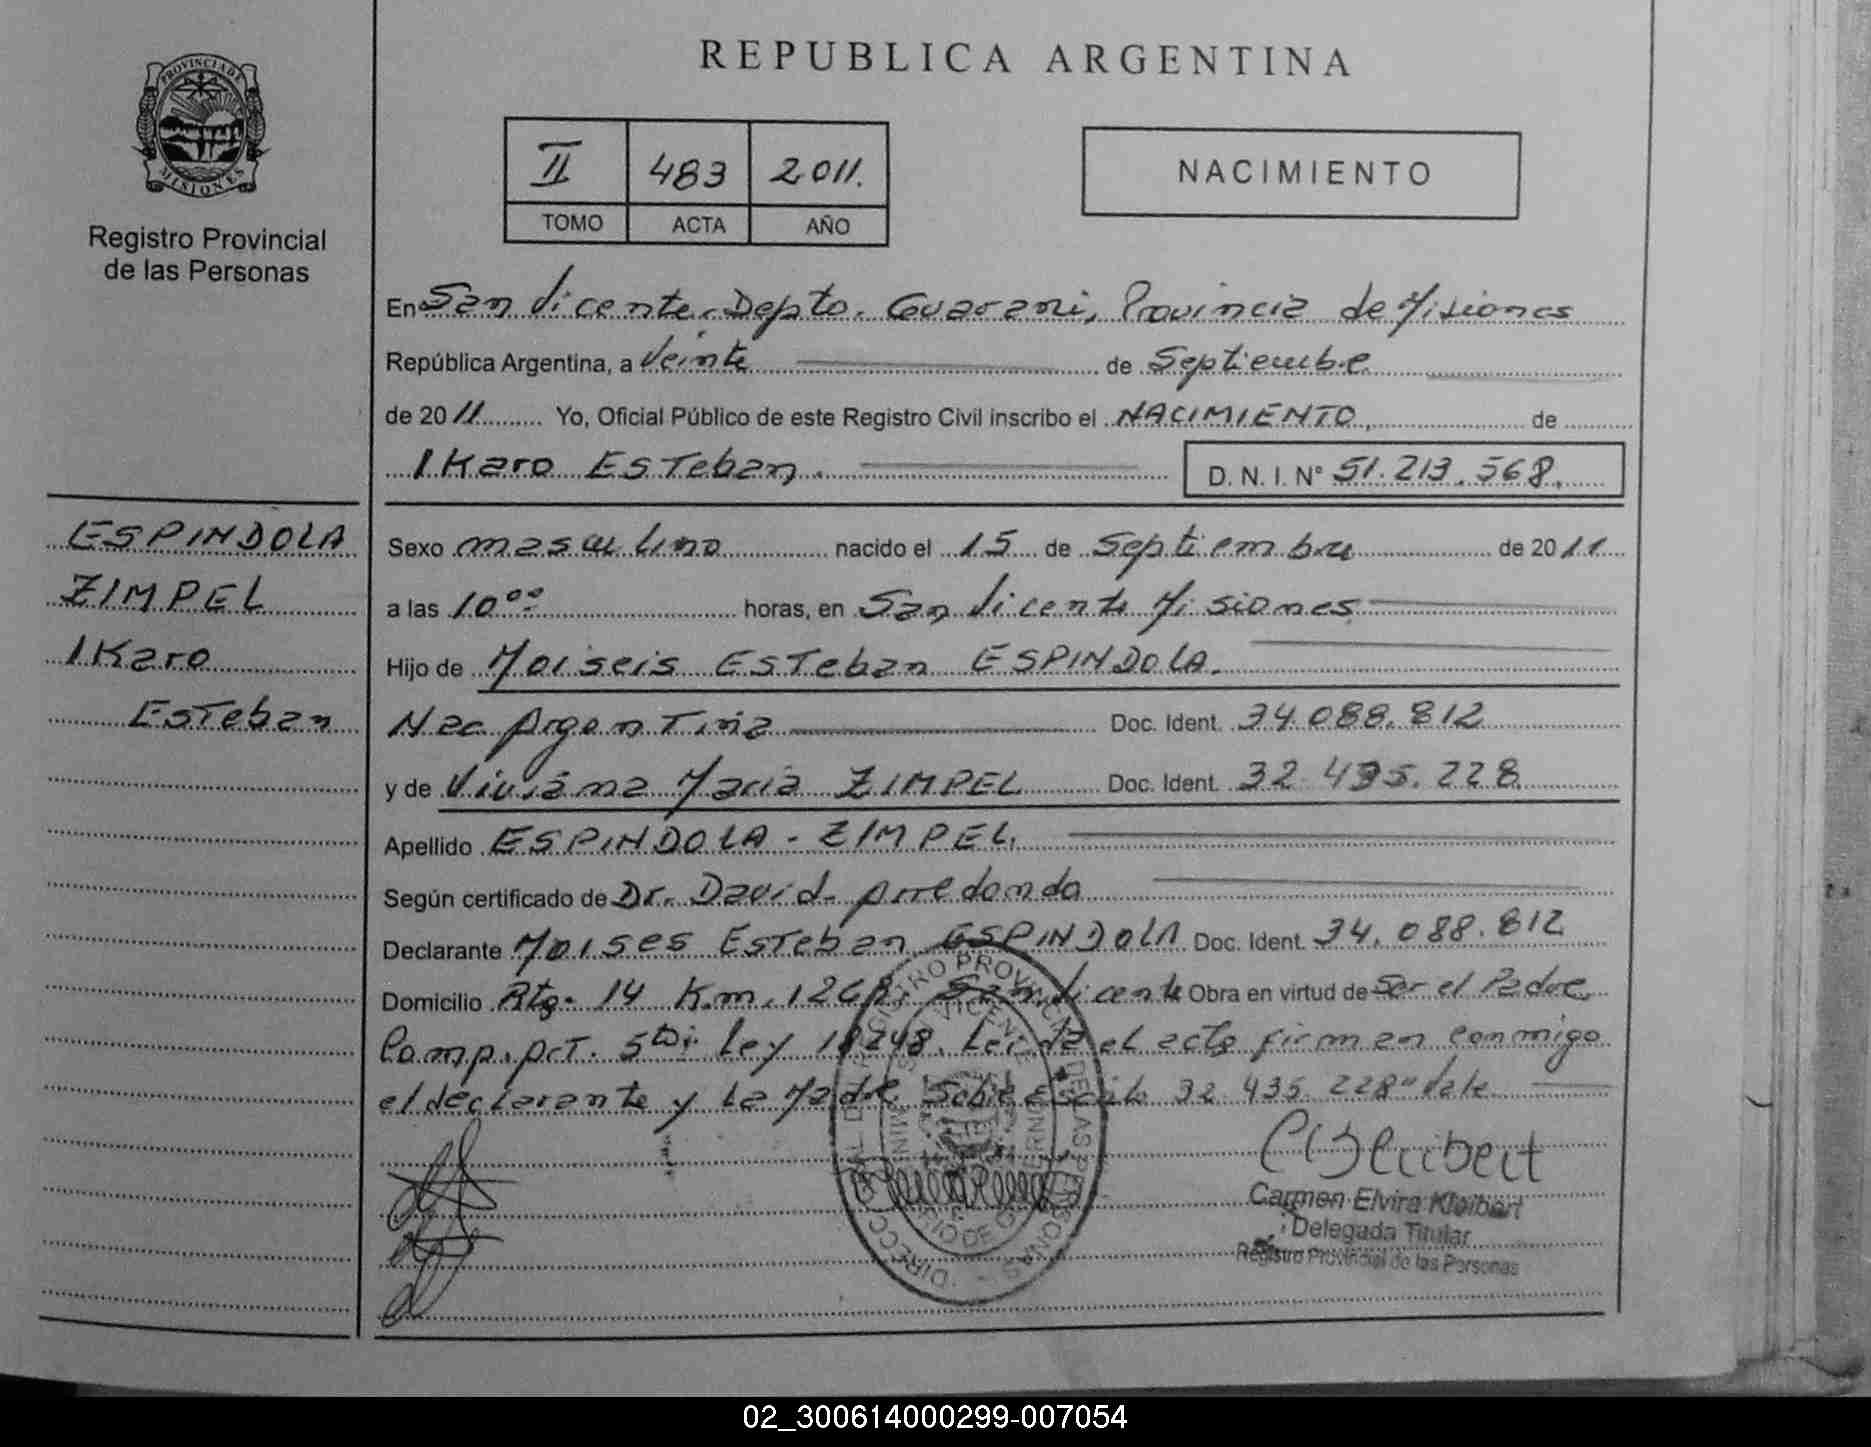 REPUBLICA ARGENTINA
PROVINCIA DE MISIONES
Registro Provincial
de las Personas
II 483 2011.
TOMO ACTA AÑO
NACIMIENTO
En San Vicente, Depto. Guarani, Provincia de Misiones
República Argentina, a Veinte de Septiembre
de 2011 Yo, Oficial Público de este Registro Civil inscribo el NACIMIENTO, de
IKaro Esteban. D. N. I. N° 51.213.568.
ESPINDOLA
ZIMPEL
IKaro
Esteban
Sexo masculino nacido el 15 de Septiembre de 2011
a las 10°° horas, en San Vicente Misiones
Hijo de Moiseis Esteban ESPINDOLA.
Nac Argentina Doc. Ident. 34.088.812
y de Viviana Maria ZIMPEL Doc. Ident. 32.435.228
Apellido ESPINDOLA - ZIMPEL.
Según certificado de Dr. David Arredondo
Declarante Moises Esteban ESPINDOLA Doc. Ident. 34.088.812
Domicilio Rta. 14 Km. 1268. San Vicente Obra en virtud de Ser el Padre
Comp. Art. 5to Ley 18248. Leida el acta firman conmigo
el declarante y la Madre. Sobre Escrito 32.435.228" Vale
Carmen Elvira Kleibert
Delegada Titular
Registro Provincial de las Personas
02_300614000299-007054